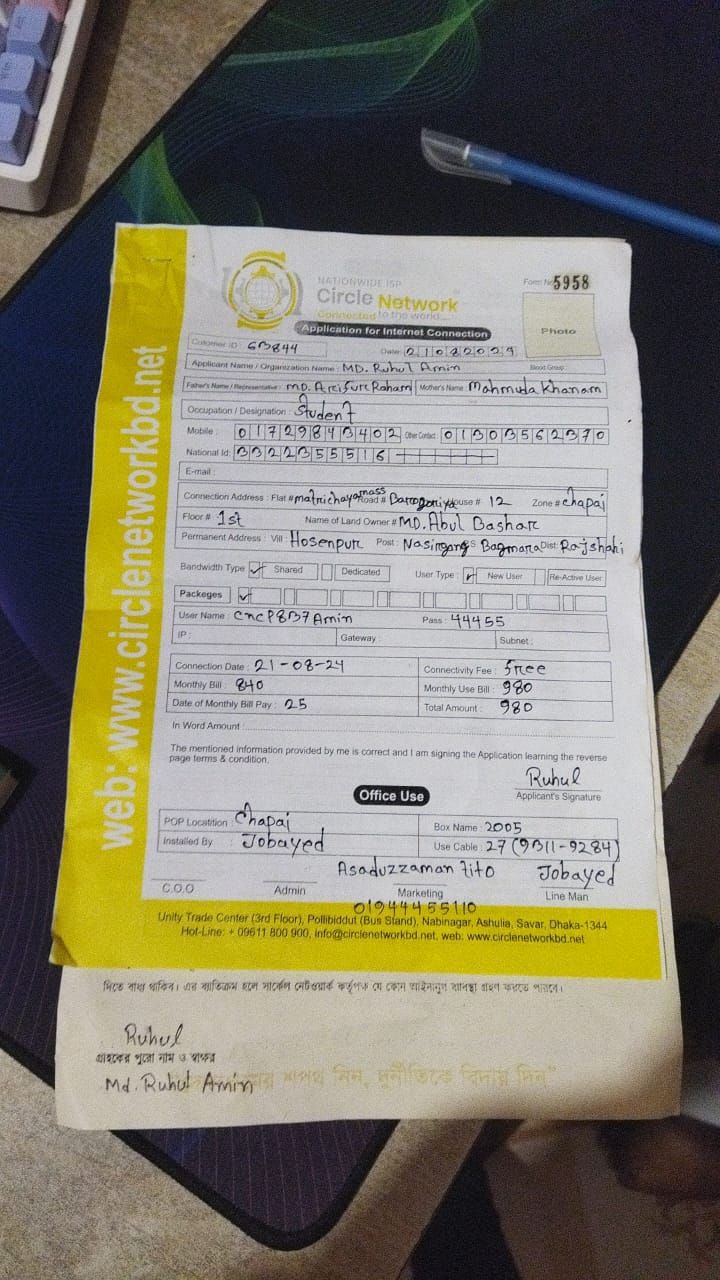 NATIONWIDE ISP
Circle Network
Connected to the world...
Form No 5958
Photo
Application for Internet Connection
Customer ID : 63844 Date: 21082024
Applicant Name / Organization Name : MD. Ruhul Amin Blood Group
Father's Name / Representative : MD. Arifur Raham Mother's Name Mahmuda Khanam
Occupation / Designation : Student
Mobile : 01729843402 Other Contact 01303562370
National Id: 3322355516
E-mail :
Connection Address : Flat # matrichaya mass Road # House # 12 Zone # Chapai
Floor # 1st Name of Land Owner # MD. Abul Bashar
Permanent Address : Vill : Hosenpur Post : Nasirgang PS Bagmara Dist: Rajshahi
Bandwidth Type ✓ Shared Dedicated User Type : ✓ New User Re-Active User
Packeges ✓
User Name : cncP837Amin Pass : 44455
IP : Gateway : Subnet :
Connection Date : 21-08-24 Connectivity Fee : free
Monthly Bill : 840 Monthly Use Bill : 980
Date of Monthly Bill Pay : 25 Total Amount : 980
In Word Amount :
The mentioned information provided by me is correct and I am signing the Application learning the reverse
page terms & condition.
Ruhul
Applicant's Signature
Office Use
POP Locatition : Chapai Box Name : 2005
Installed By : Jobayed Use Cable : 27 (9311-9284)
Asaduzzaman Tito Jobayed
C.O.O Admin Marketing Line Man
01944455110
Unity Trade Center (3rd Floor), Pollibiddut (Bus Stand), Nabinagar, Ashulia, Savar, Dhaka-1344
Hot-Line: + 09611 800 900, info@circlenetworkbd.net, web: www.circlenetworkbd.net
web: www.circlenetworkbd.net
দিতে বাধ্য থাকিব। এর ব্যতিক্রম হলে সার্কেল নেটওয়ার্ক কর্তৃপক্ষ যে কোন আইনানুগ ব্যবস্থা গ্রহণ করতে পারবে।
Ruhul
গ্রাহকের পুরো নাম ও স্বাক্ষর
Md. Ruhul Amin
শপথ নিন, দুর্নীতিকে বিদায় দিন"